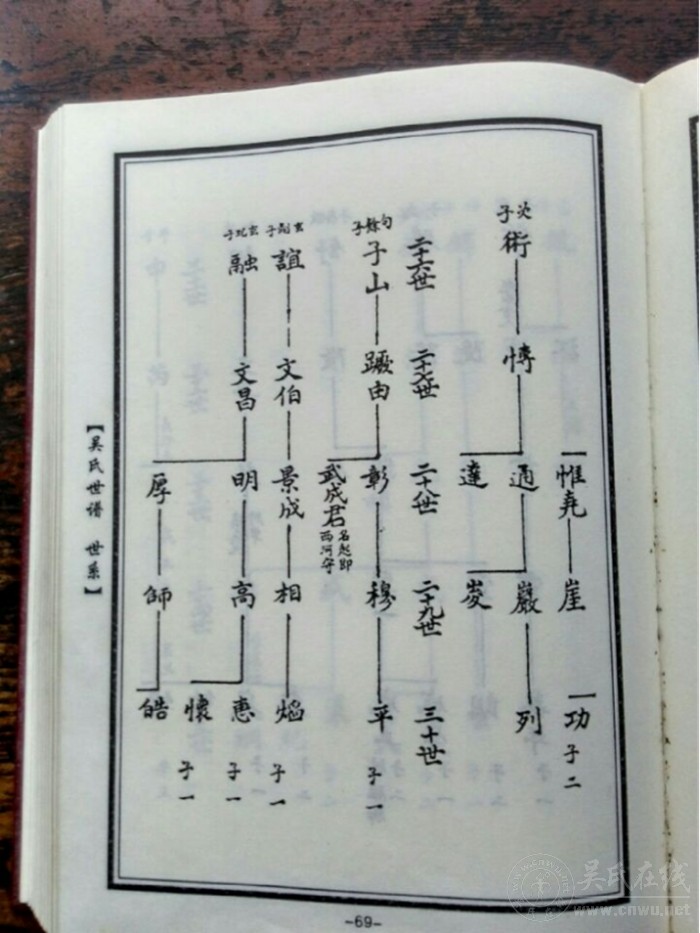 惟堯
崖
功
子二
炎子
術
愽
通
達
巖
峻
列
二十六世
二十七世
二十八世
二十九世
三十世
句餘子
子山
蹶由
彰
武成君
名起即
西河守
穆
平
子一
誼
文伯
景成
相
焰
子一
融
文昌
明
厚
高
師
惠
子一
懷
子一
皓
【吴氏世譜 世系】
-69-
吴氏在线
www.cnwu.net